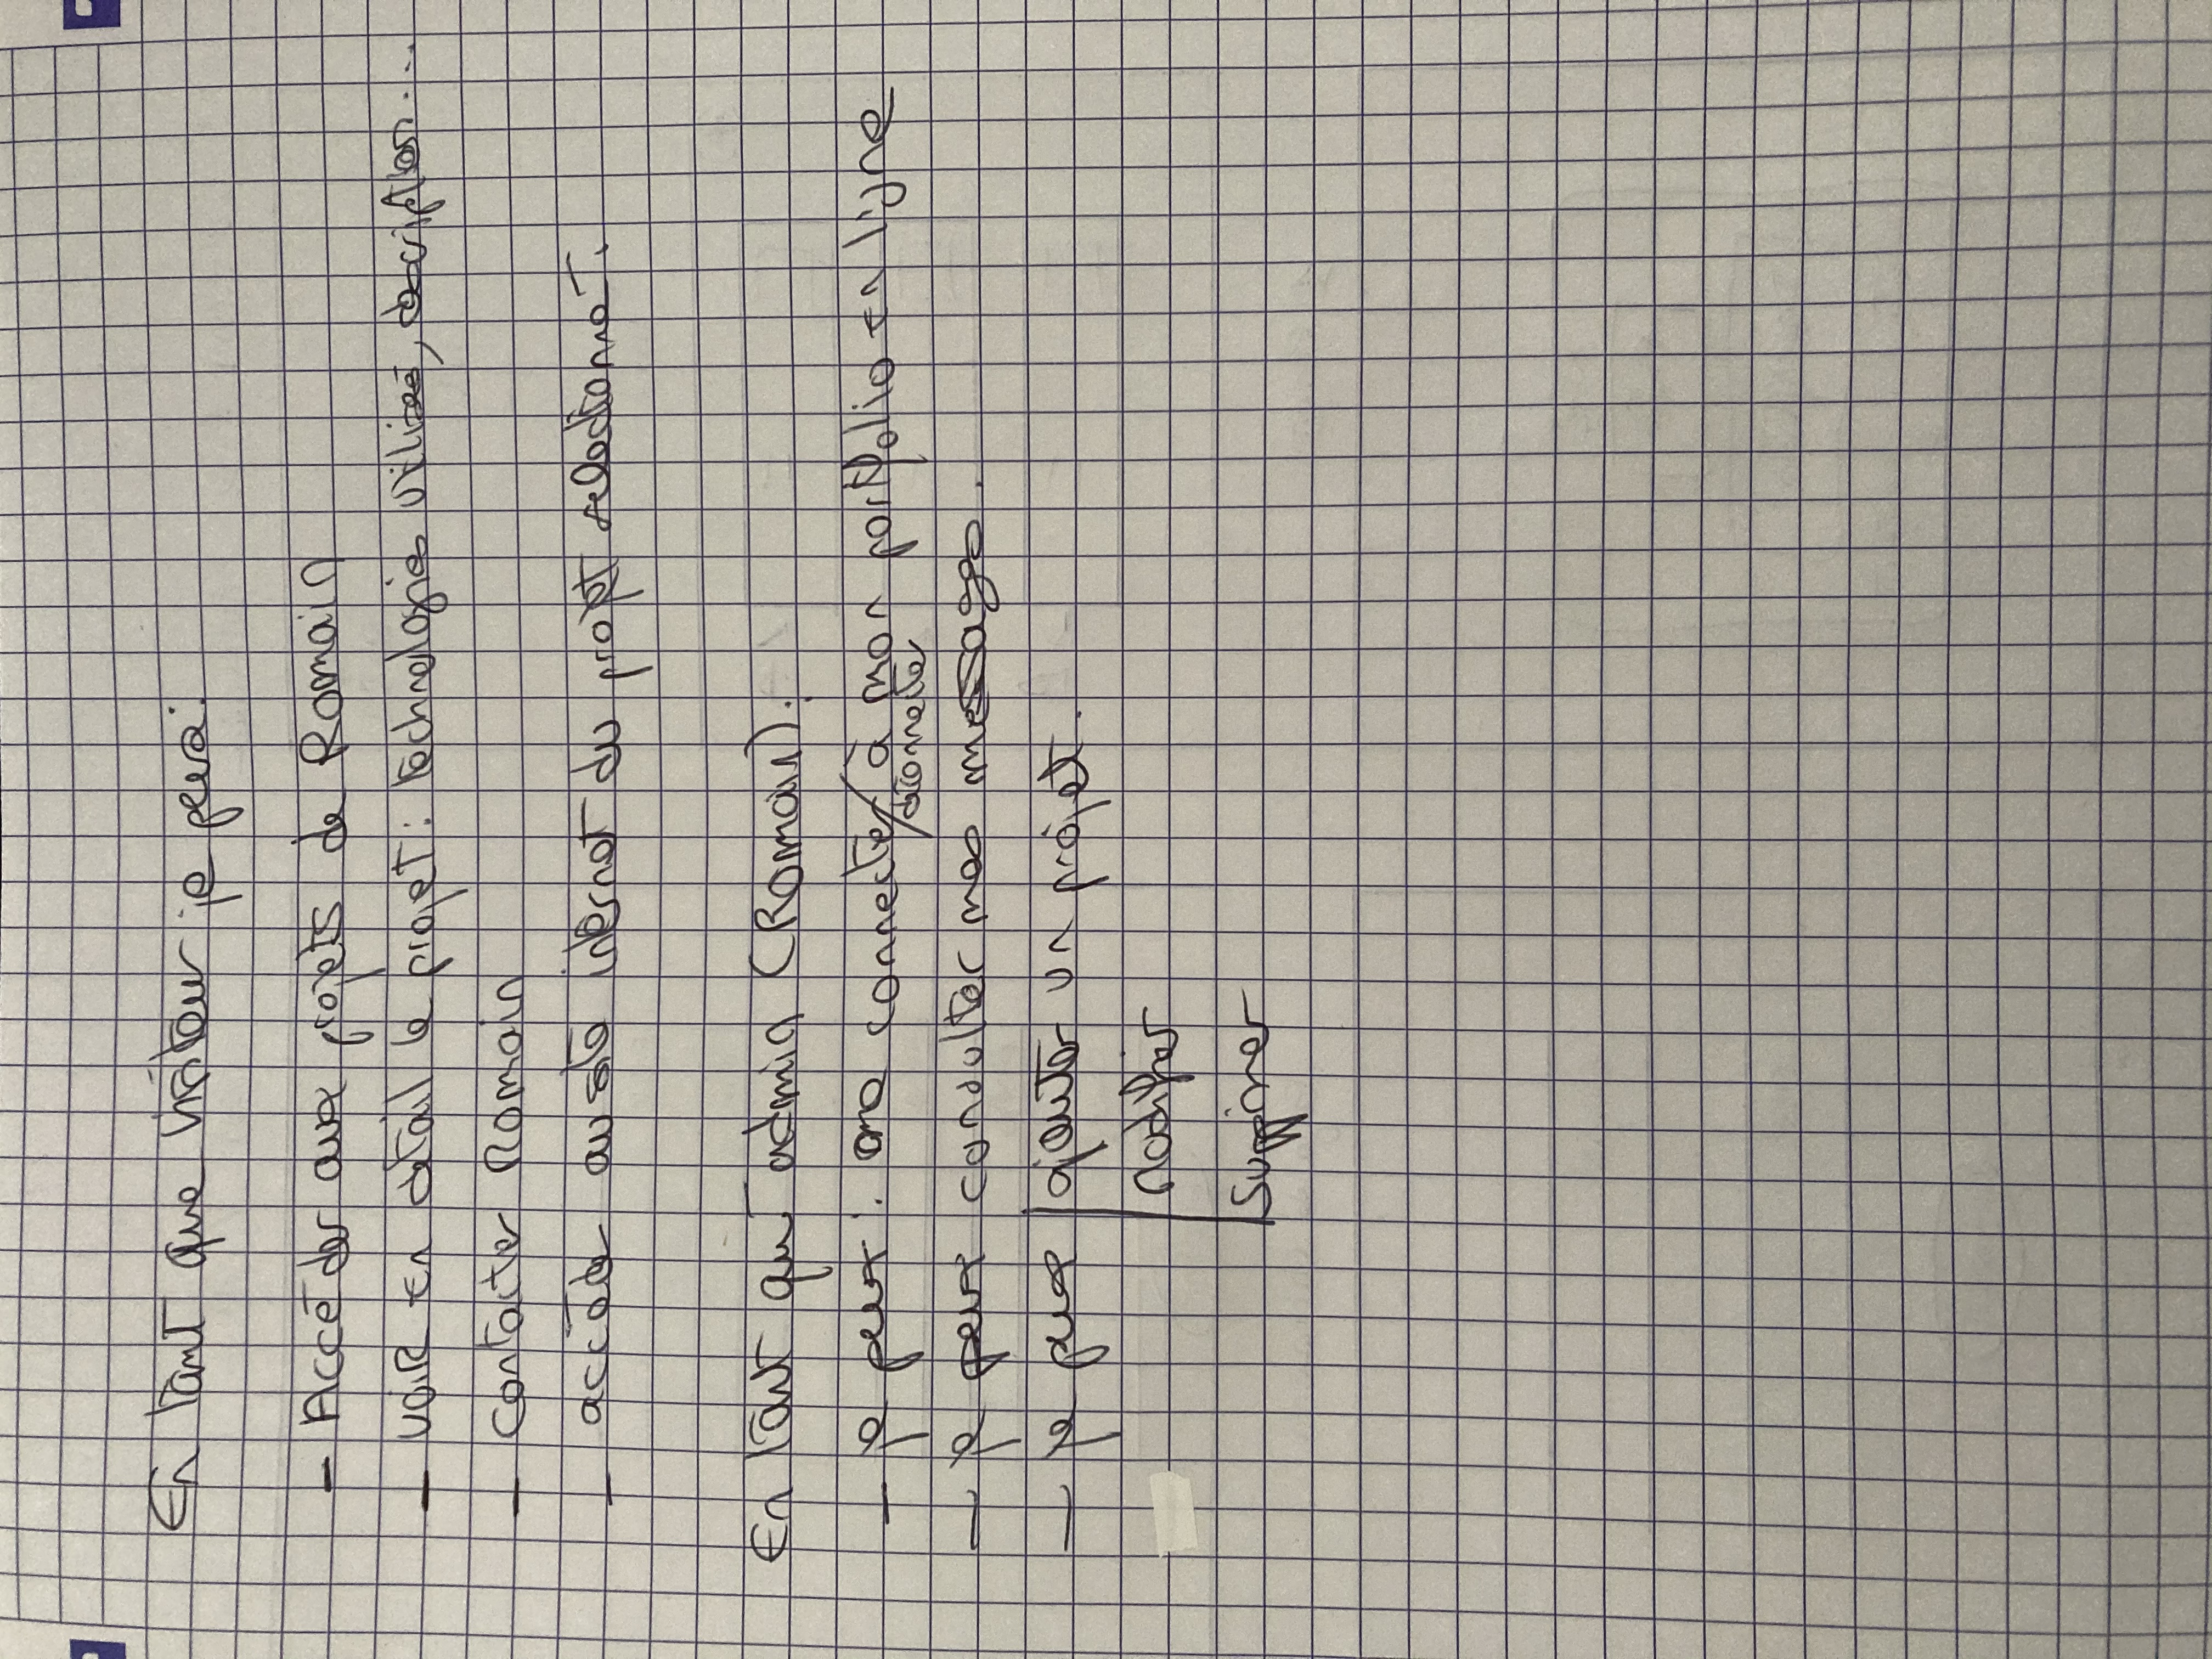 En tant que visiteur je peux:
- Accéder aux projets de Romain
- voir en détail le projet: technologies utilisés, description...
- contacter Romain
- accéder au site internet du projet selectionné.
En tant qu'admin (Romain):
- je peux: me connecter/déconnecter à mon portfolio en ligne
- je peux consulter mes messages.
- je peux ajouter un projet.
modifier
supprimer